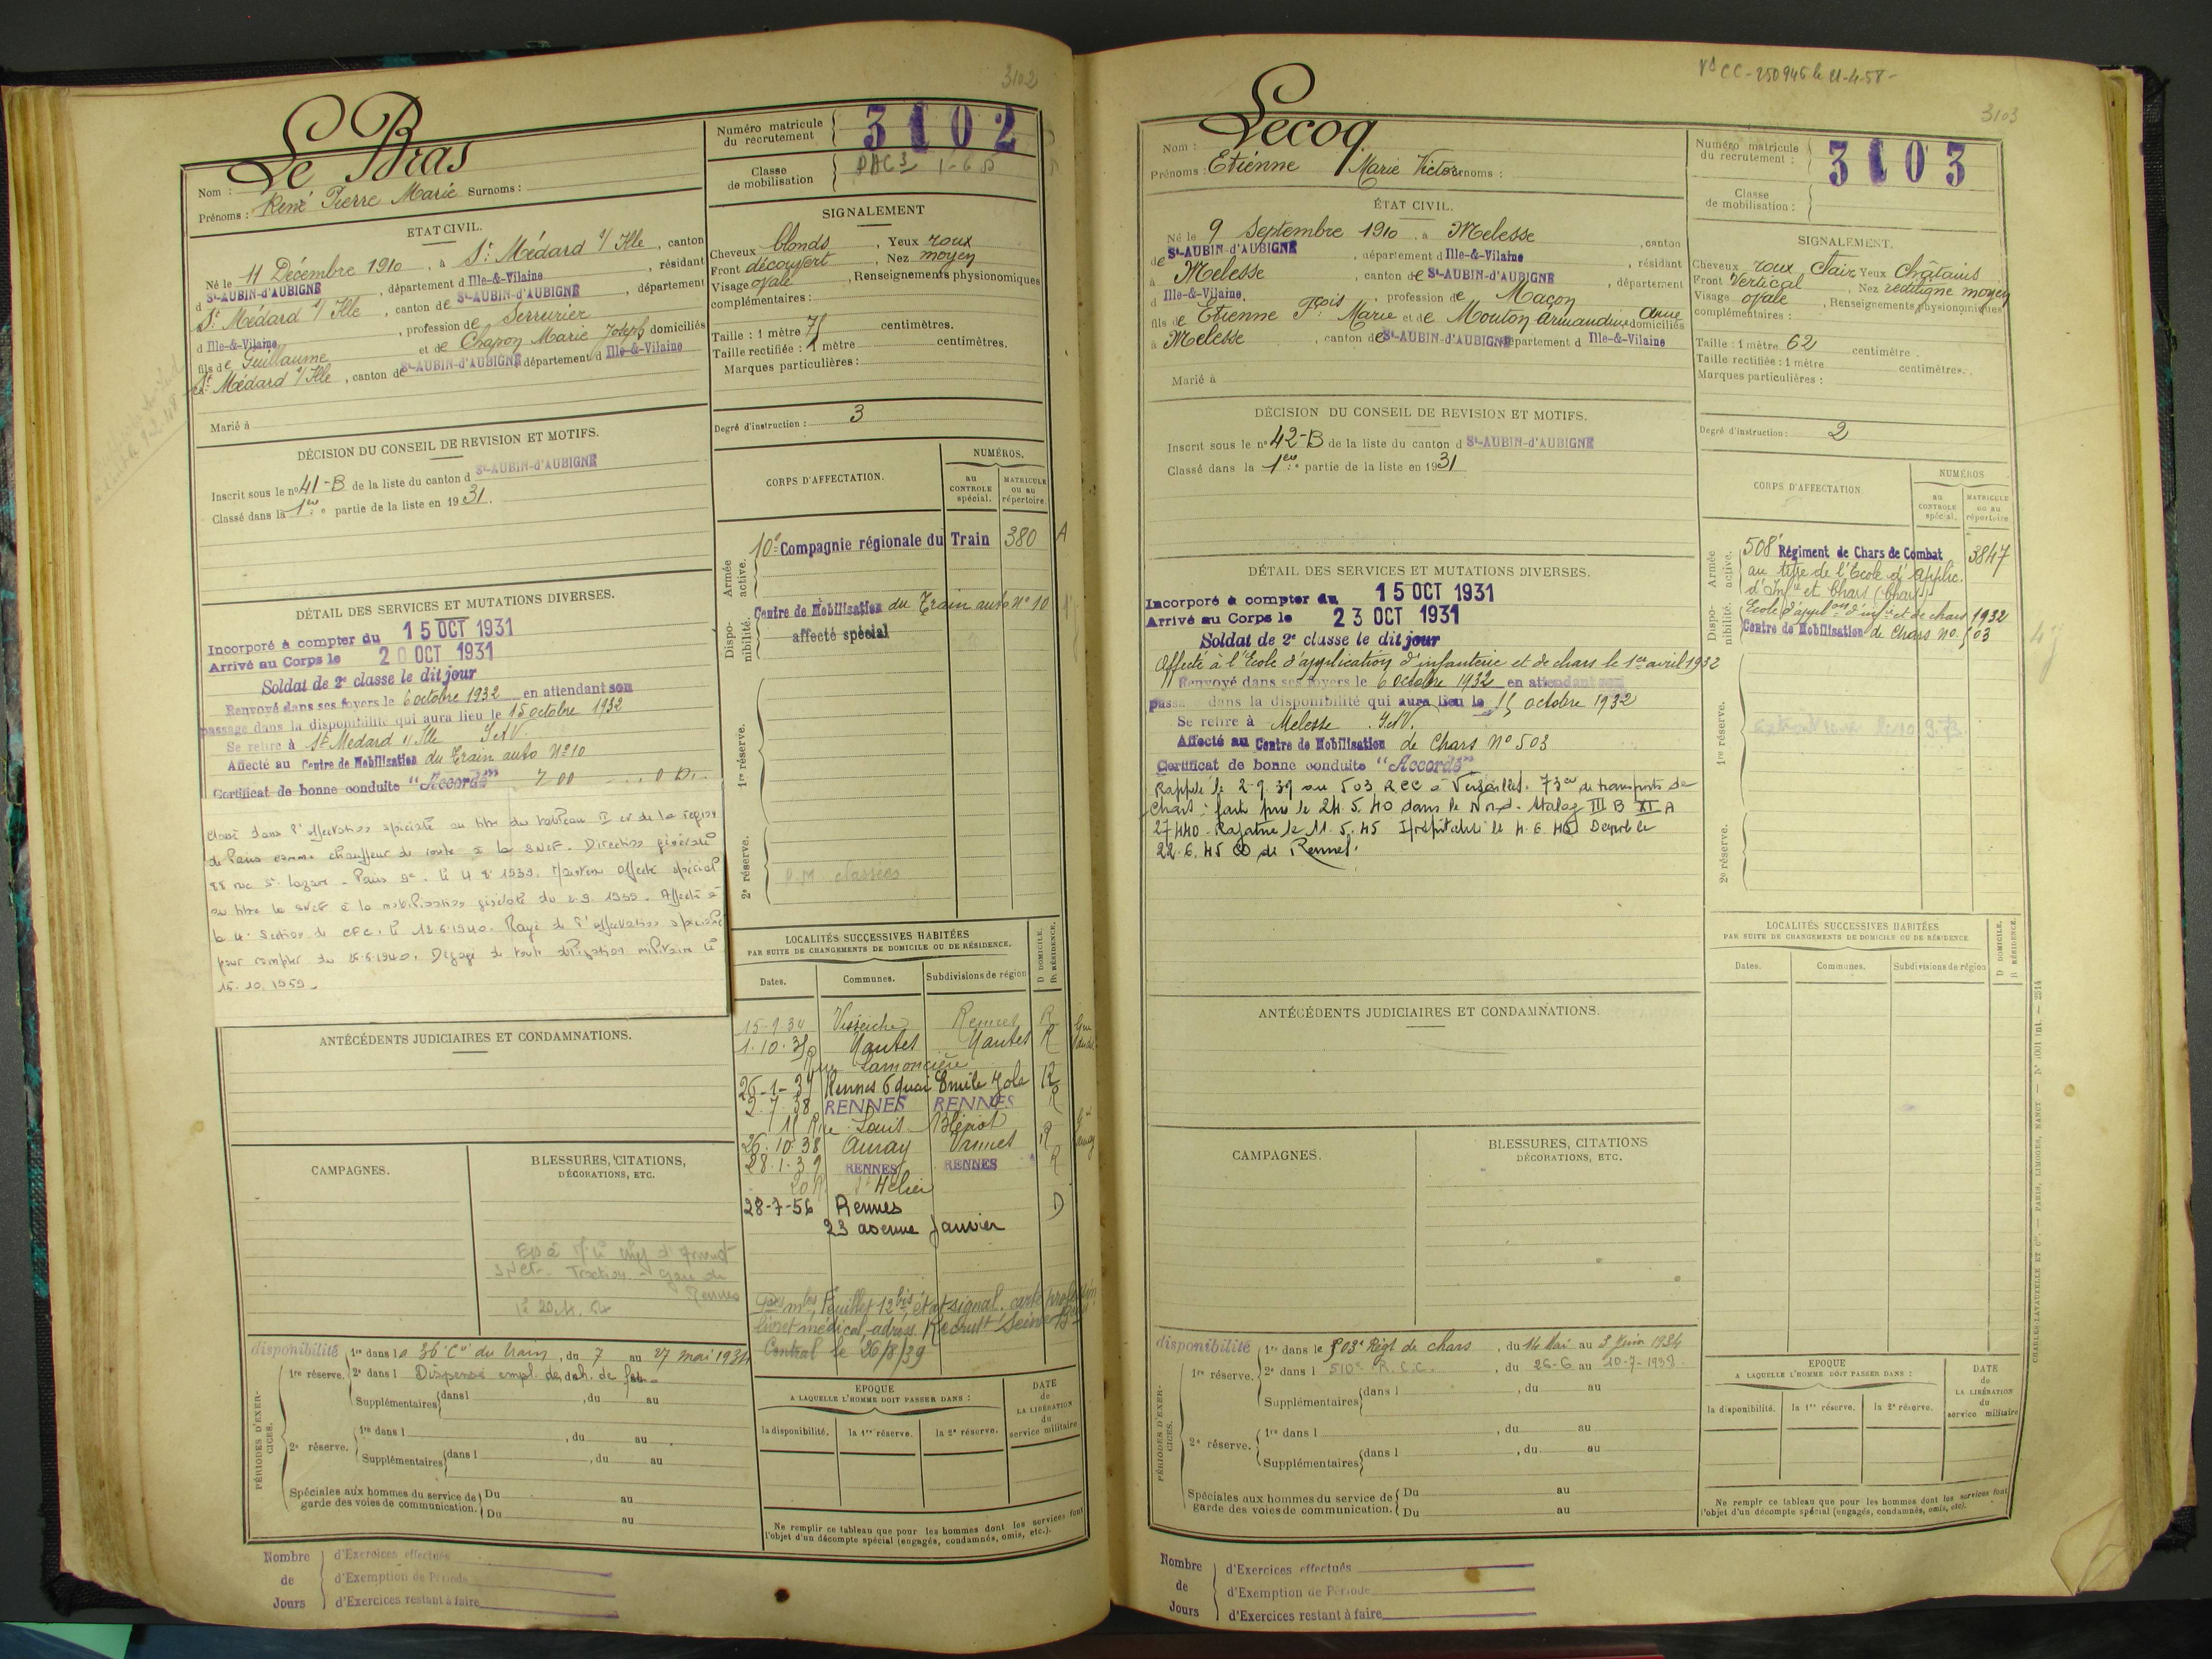 3102
Le Bras
Nom :
Prénoms : René Pierre Marie Surnoms :
Numéro matricule du recrutement 3102
Classe de mobilisation
ETAT CIVIL.
Né le 11 Décembre 1910, à St Médard s/ Ille, canton
d St-AUBIN-d'AUBIGNÉ, département d Ille-&-Vilaine, résidant
St Médard s/ Ille, canton de St-AUBIN-d'AUBIGNÉ, département
d Ille-&-Vilaine, profession de Serrurier
fils de Guillaume et de Chapon Marie Joseph domiciliés
à St Médard s/ Ille, canton de St-AUBIN-d'AUBIGNÉ département d Ille-&-Vilaine
Marié à
SIGNALEMENT
Cheveux blonds, Yeux roux
Front découvert, Nez moyen
Visage ovale, Renseignements physionomiques
complémentaires :
Taille : 1 mètre 75 centimètres.
Taille rectifiée : 1 mètre centimètres.
Marques particulières :
Degré d'instruction : 3
DÉCISION DU CONSEIL DE REVISION ET MOTIFS.
Inscrit sous le no 41-B de la liste du canton d St-AUBIN-d'AUBIGNÉ
Classé dans la 1ere partie de la liste en 1931.
CORPS D'AFFECTATION.
NUMÉROS.
au CONTROLE spécial.
MATRICULE ou au répertoire.
Armée active.
10e Compagnie régionale du Train 380 A
Disponibilité.
Centre de Mobilisation du Train auto No 10
affecté spécial
1re réserve.
2e réserve.
classées
DÉTAIL DES SERVICES ET MUTATIONS DIVERSES.
Incorporé à compter du 15 OCT 1931
Arrivé au Corps le 20 OCT 1931
Soldat de 2e classe le dit jour
Renvoyé dans ses foyers le 6 octobre 1932 en attendant son
passage dans la disponibilité qui aura lieu le 15 octobre 1932
Se retire à St Médard s/ Ille I et V.
Affecté au Centre de Mobilisation du Train auto No 10
Certificat de bonne conduite "Accordé"
Classé dans l'affectation spéciale au titre du tableau I et de la région
de Paris comme chauffeur de route à la SNCF. Direction générale
88 rue St Lazare - Paris 9e. Le 1939. Maintenu affecté spécial
au titre la SNCF à la mobilisation générale du 2.9.1939. Affecté à
la 4e Section de CFC. le 12.6.1940. Rayé de l'affectation spéciale
pour compter du 1940. Dégagé de toute obligation militaire le
15.10.1959.
ANTÉCÉDENTS JUDICIAIRES ET CONDAMNATIONS.
LOCALITÉS SUCCESSIVES HABITÉES
PAR SUITE DE CHANGEMENTS DE DOMICILE OU DE RÉSIDENCE.
Dates. Communes. Subdivisions de région D DOMICILE. R RÉSIDENCE.
15-9-34 Visseiche Rennes R
1.10.35 Nantes Nantes R
rue Lamoricière
26-1-37 Rennes 6 quai Emile Zola R
2.7.38 RENNES RENNES R
11 Rue Louis Blériot
26.10.38 Auray Vannes R
28.1.39 RENNES RENNES R
20 R. St Hélier
28-7-56 Rennes D
23 avenue Janvier
CAMPAGNES.
BLESSURES, CITATIONS, DÉCORATIONS, ETC.
SNCF. Traction - Gare de
Rennes
Feuillet 12 bis état signal. carte
livret médical, adres. Recrutt Seine
Central le 26/8/39
PÉRIODES D'EXERCICES.
disponibilité 1re dans la 36e Cie du train, du 7 au 27 mai 1934
1re réserve. 2e dans l Dispensé empl. de ch. de fer
Supplémentaires dans l , du au
2e réserve. 1re dans l , du au
Supplémentaires dans l , du au
Spéciales aux hommes du service de garde des voies de communication. Du au
Du au
EPOQUE
A LAQUELLE L'HOMME DOIT PASSER DANS :
la disponibilité. la 1re réserve. la 2e réserve.
DATE de LA LIBÉRATION du service militaire
Ne remplir ce tableau que pour les hommes dont les services font
l'objet d'un décompte spécial (engagés, condamnés, omis, etc.).
Nombre de Jours
d'Exercices effectués
d'Exemption de Période
d'Exercices restant à faire
Vs CC-250946 le 21-4-58-
3103
Lecoq
Nom :
Prénoms : Etienne Marie Victor
Numéro matricule du recrutement : 3103
Classe de mobilisation :
ÉTAT CIVIL.
Né le 9 Septembre 1910, à Melesse, canton
de St-AUBIN-d'AUBIGNÉ, département d Ille-&-Vilaine, résidant
à Melesse, canton de St-AUBIN-d'AUBIGNÉ, département
d Ille-&-Vilaine, profession de Maçon
fils de Etienne Fçois Marie et de Mouton Armandine Anne domiciliés
à Melesse, canton de St-AUBIN-d'AUBIGNÉ département d Ille-&-Vilaine
Marié à
SIGNALEMENT.
Cheveux roux clair Yeux Châtains
Front Vertical, Nez rectiligne moyen
Visage ovale, Renseignements physionomiques
complémentaires :
Taille : 1 mètre 62 centimètre.
Taille rectifiée : 1 mètre centimètres.
Marques particulières :
Degré d'instruction : 2
DÉCISION DU CONSEIL DE REVISION ET MOTIFS.
Inscrit sous le no 42-B de la liste du canton d St-AUBIN-d'AUBIGNÉ
Classé dans la 1ere partie de la liste en 1931
CORPS D'AFFECTATION.
NUMÉROS
au CONTROLE spécial.
MATRICULE ou au répertoire
Armée active.
508e Régiment de Chars de Combat 3847
au titre de l'Ecole d'Applic.
d'Infie et Chars (Chars)
Disponibilité.
Ecole d'applon d'infie et de chars 1932
Centre de Mobilisation de Chars No. 503
1re réserve.
2e réserve.
DÉTAIL DES SERVICES ET MUTATIONS DIVERSES.
Incorporé à compter du 15 OCT 1931
Arrivé au Corps le 23 OCT 1931
Soldat de 2e classe le dit jour
Affecté à l'Ecole d'application d'infanterie et de chars le 1er avril 1932
Renvoyé dans ses foyers le 6 Octobre 1932 en attendant son
passa dans la disponibilité qui aura lieu le 15 octobre 1932
Se retire à Melesse I.&V.
Affecté au Centre de Mobilisation de Chars No 503
Certificat de bonne conduite "Accordé"
Rappelé le 2-9.39 au 503 RCC à Versailles. 73e Cie de transports de
chars - fait pris le 24.5.40 dans le Nord. Stalag III B XI A
27440 - Rapatrié le 11.5.45 Hospitalisé le 4.6.45 Démob le
22.6.45 CD de Rennes.
ANTÉCÉDENTS JUDICIAIRES ET CONDAMNATIONS.
LOCALITÉS SUCCESSIVES HABITÉES
PAR SUITE DE CHANGEMENTS DE DOMICILE OU DE RÉSIDENCE
Dates. Communes. Subdivisions de région D DOMICILE. R RÉSIDENCE.
CAMPAGNES.
BLESSURES, CITATIONS DÉCORATIONS, ETC.
PÉRIODES D'EXERCICES.
disponibilité 1re dans le 503e Régt de chars, du 14 Mai au 3 Juin 1934
1re réserve. 2e dans l 510e R.C.C., du 26-6 au 10-7-1938.
Supplémentaires dans l , du au
2e réserve. 1re dans l , du au
Supplémentaires dans l , du au
Spéciales aux hommes du service de garde des voies de communication. Du au
Du au
EPOQUE
A LAQUELLE L'HOMME DOIT PASSER DANS :
la disponibilité. la 1re réserve. la 2e réserve.
DATE de LA LIBÉRATION du service militaire
Ne remplir ce tableau que pour les hommes dont les services font
l'objet d'un décompte spécial (engagés, condamnés, omis, etc).
CHARLES-LAVAUZELLE ET Cie. — PARIS, LIMOGES, NANCY — No 1001 Int. — 2514
Nombre de Jours
d'Exercices effectués
d'Exemption de Période
d'Exercices restant à faire